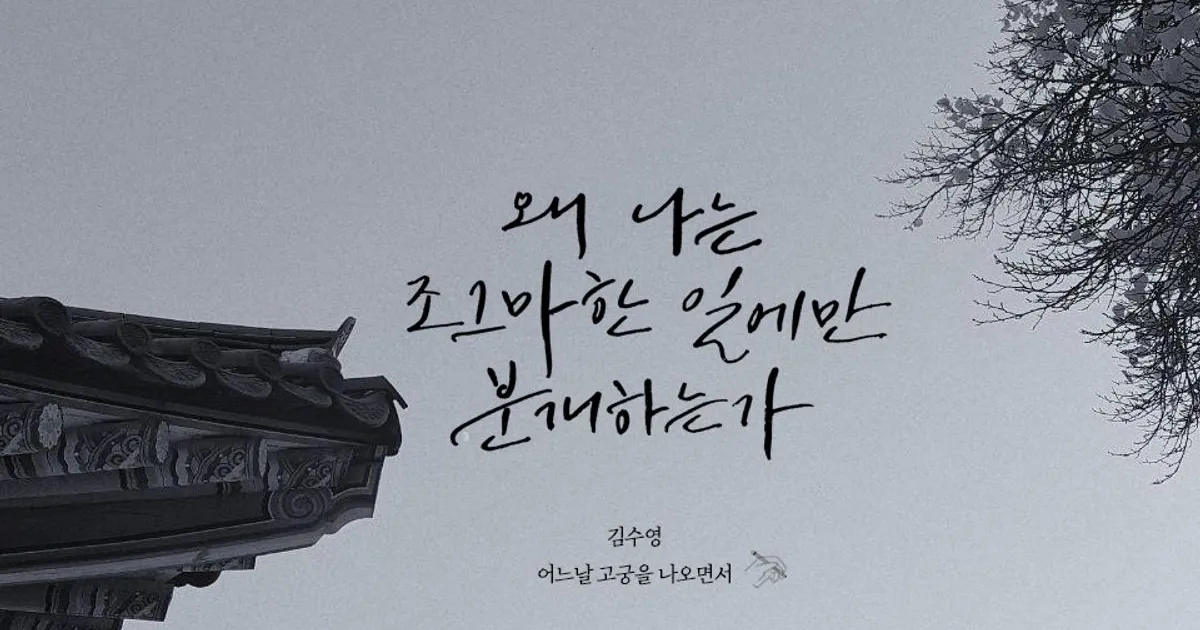 왜 나는
조그마한 일에만
분개하는가
김수영
어느날 고궁을 나오면서